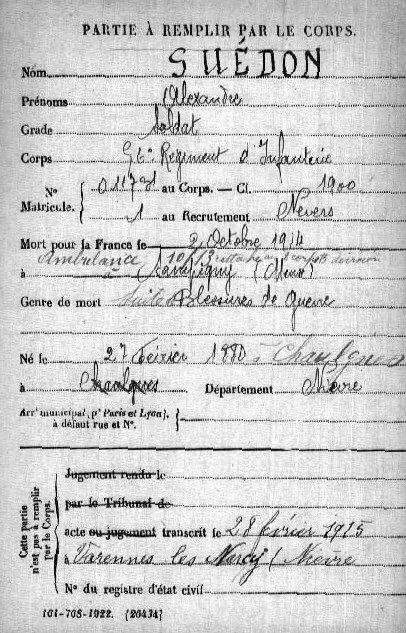 PARTIE À REMPLIR PAR LE CORPS.
Nom SUÉDON
Prénoms Alexandre
Grade Soldat
Corps 56e Régiment d'Infanterie
No 01173 au Corps. — Cl. 1900
Matricule. 1 au Recrutement Nevers
Mort pour la France le 2 Octobre 1914
Ambulance 10/13
à Sampigny (Meuse)
Genre de mort Suites Blessures de Guerre
Né le 27 Février 1880 à Chaulgnes
à Chaulgnes Département Nièvre
Arrt municipal (pr Paris et Lyon), à défaut rue et No.
Cette partie n'est pas à remplir par le Corps.
Jugement rendu le
par le Tribunal de
acte ou jugement transcrit le 28 février 1915
à Varennes les Narcy (Nièvre
No du registre d'état civil
101-708-1922. (20434)